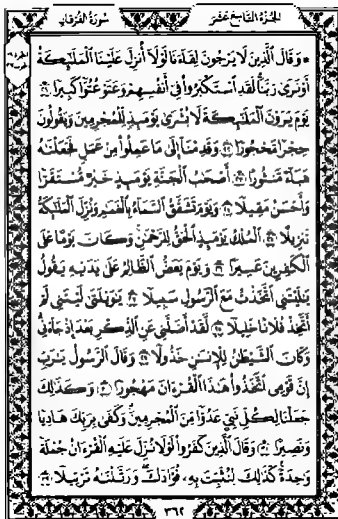 الجزء التاسع عشر
سورة الفرقان
وَقَالَ الَّذِينَ لَا يَرْجُونَ لِقَاءَنَا لَوْلَا أُنزِلَ عَلَيْنَا الْمَلَائِكَةُ
أَوْ نَرَىٰ رَبَّنَا لَقَدِ اسْتَكْبَرُوا فِي أَنفُسِهِمْ وَعَتَوْ عُتُوًّا كَبِيرًا ٢١
يَوْمَ يَرَوْنَ الْمَلَائِكَةَ لَا بُشْرَىٰ يَوْمَئِذٍ لِّلْمُجْرِمِينَ وَيَقُولُونَ
حِجْرًا مَّحْجُورًا ٢٢ وَقَدِمْنَا إِلَىٰ مَا عَمِلُوا مِنْ عَمَلٍ فَجَعَلْنَاهُ
هَبَاءً مَّنثُورًا ٢٣ أَصْحَابُ الْجَنَّةِ يَوْمَئِذٍ خَيْرٌ مُّسْتَقَرًّا
وَأَحْسَنُ مَقِيلًا ٢٤ وَيَوْمَ تَشَقَّقُ السَّمَاءُ بِالْغَمَامِ وَنُزِّلَ الْمَلَائِكَةُ
تَنزِيلًا ٢٥ الْمُلْكُ يَوْمَئِذٍ الْحَقُّ لِلرَّحْمَٰنِ وَكَانَ يَوْمًا عَلَى
الْكَافِرِينَ عَسِيرًا ٢٦ وَيَوْمَ يَعَضُّ الظَّالِمُ عَلَىٰ يَدَيْهِ يَقُولُ
يَالَيْتَنِي اتَّخَذْتُ مَعَ الرَّسُولِ سَبِيلًا ٢٧ يَاوَيْلَتَىٰ لَيْتَنِي لَمْ
أَتَّخِذْ فُلَانًا خَلِيلًا ٢٨ لَّقَدْ أَضَلَّنِي عَنِ الذِّكْرِ بَعْدَ إِذْ جَاءَنِي
وَكَانَ الشَّيْطَانُ لِلْإِنسَانِ خَذُولًا ٢٩ وَقَالَ الرَّسُولُ يَارَبِّ
إِنَّ قَوْمِي اتَّخَذُوا هَٰذَا الْقُرْآنَ مَهْجُورًا ٣٠ وَكَذَٰلِكَ
جَعَلْنَا لِكُلِّ نَبِيٍّ عَدُوًّا مِّنَ الْمُجْرِمِينَ وَكَفَىٰ بِرَبِّكَ هَادِيًا
وَنَصِيرًا ٣١ وَقَالَ الَّذِينَ كَفَرُوا لَوْلَا نُزِّلَ عَلَيْهِ الْقُرْآنُ جُمْلَةً
وَاحِدَةً كَذَٰلِكَ لِنُثَبِّتَ بِهِ فُؤَادَكَ وَرَتَّلْنَاهُ تَرْتِيلًا ٣٢
٣٦٢